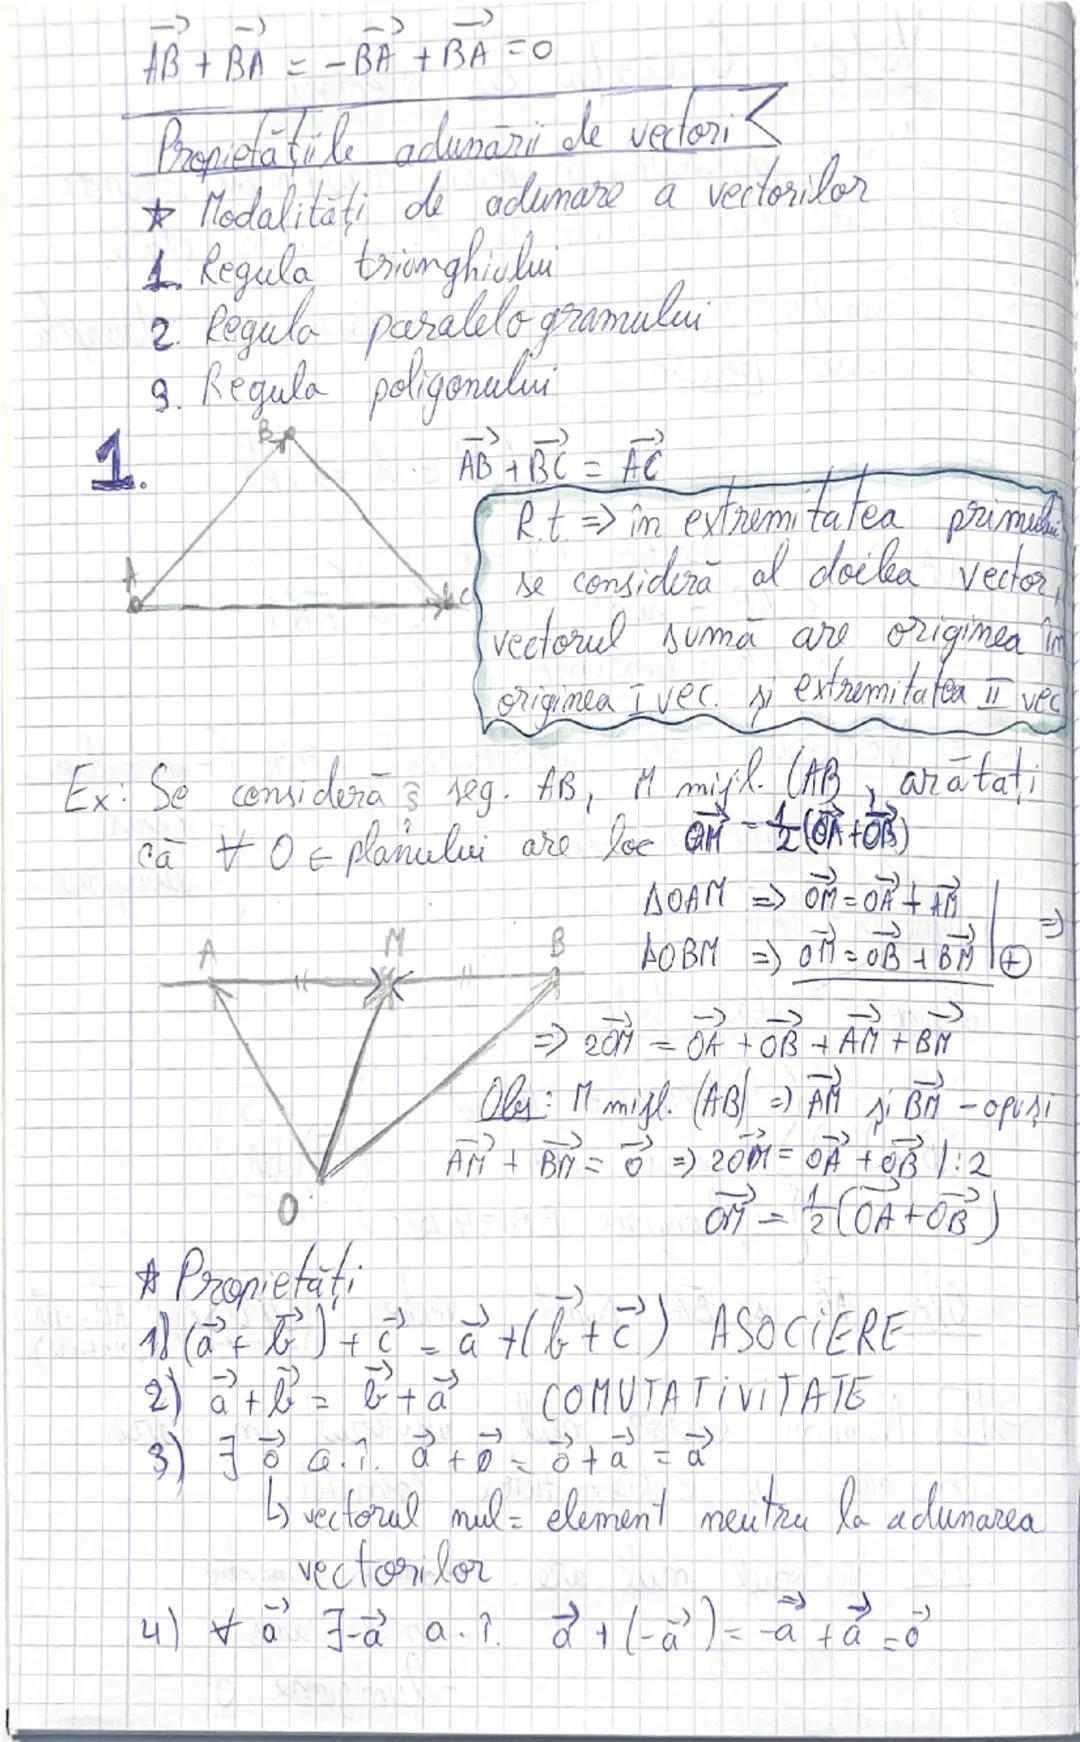 AB⃗ + BA⃗ = -BA⃗ + BA⃗ = 0
Propietățiile adunării de vectori
★ Modalități de adunare a vectorilor
1. Regula triunghiului
2. Regula paralelogramului
3. Regula poligonului
1.
B
A
C
AB⃗ + BC⃗ = AC⃗
R.t. => în extremitatea primului
se consideră al doilea vector,
vectorul sumă are originea în
originea I vec. și extremitatea II vec
Ex: Se consideră seg. AB, M mijl. (AB), arătați
că ∀ O ∈ planului are loc OM⃗ = 1/2 (OA⃗ + OB⃗)
ΔOAM => OM⃗ = OA⃗ + AM⃗
ΔOBM => OM⃗ = OB⃗ + BM⃗ | ⊕ =>
A M B
O
=> 2OM⃗ = OA⃗ + OB⃗ + AM⃗ + BM⃗
Obs: M mijl. (AB) => AM⃗ și BM⃗ - opuși
AM⃗ + BM⃗ = 0⃗ => 2OM⃗ = OA⃗ + OB⃗ |:2
OM⃗ = 1/2 (OA⃗ + OB⃗)
★ Propietăți
1) (a⃗ + b⃗) + c⃗ = a⃗ + (b⃗ + c⃗) ASOCiERE
2) a⃗ + b⃗ = b⃗ + a⃗ COMUTATiViTATE
3) ∃ 0⃗ a.î. a⃗ + 0⃗ = 0⃗ + a⃗ = a⃗
↳ vectorul nul = element neutru la adunarea
vectorilor
4) ∀ a⃗ ∃ -a⃗ a.î. a⃗ + (-a⃗) = -a⃗ + a⃗ = 0⃗